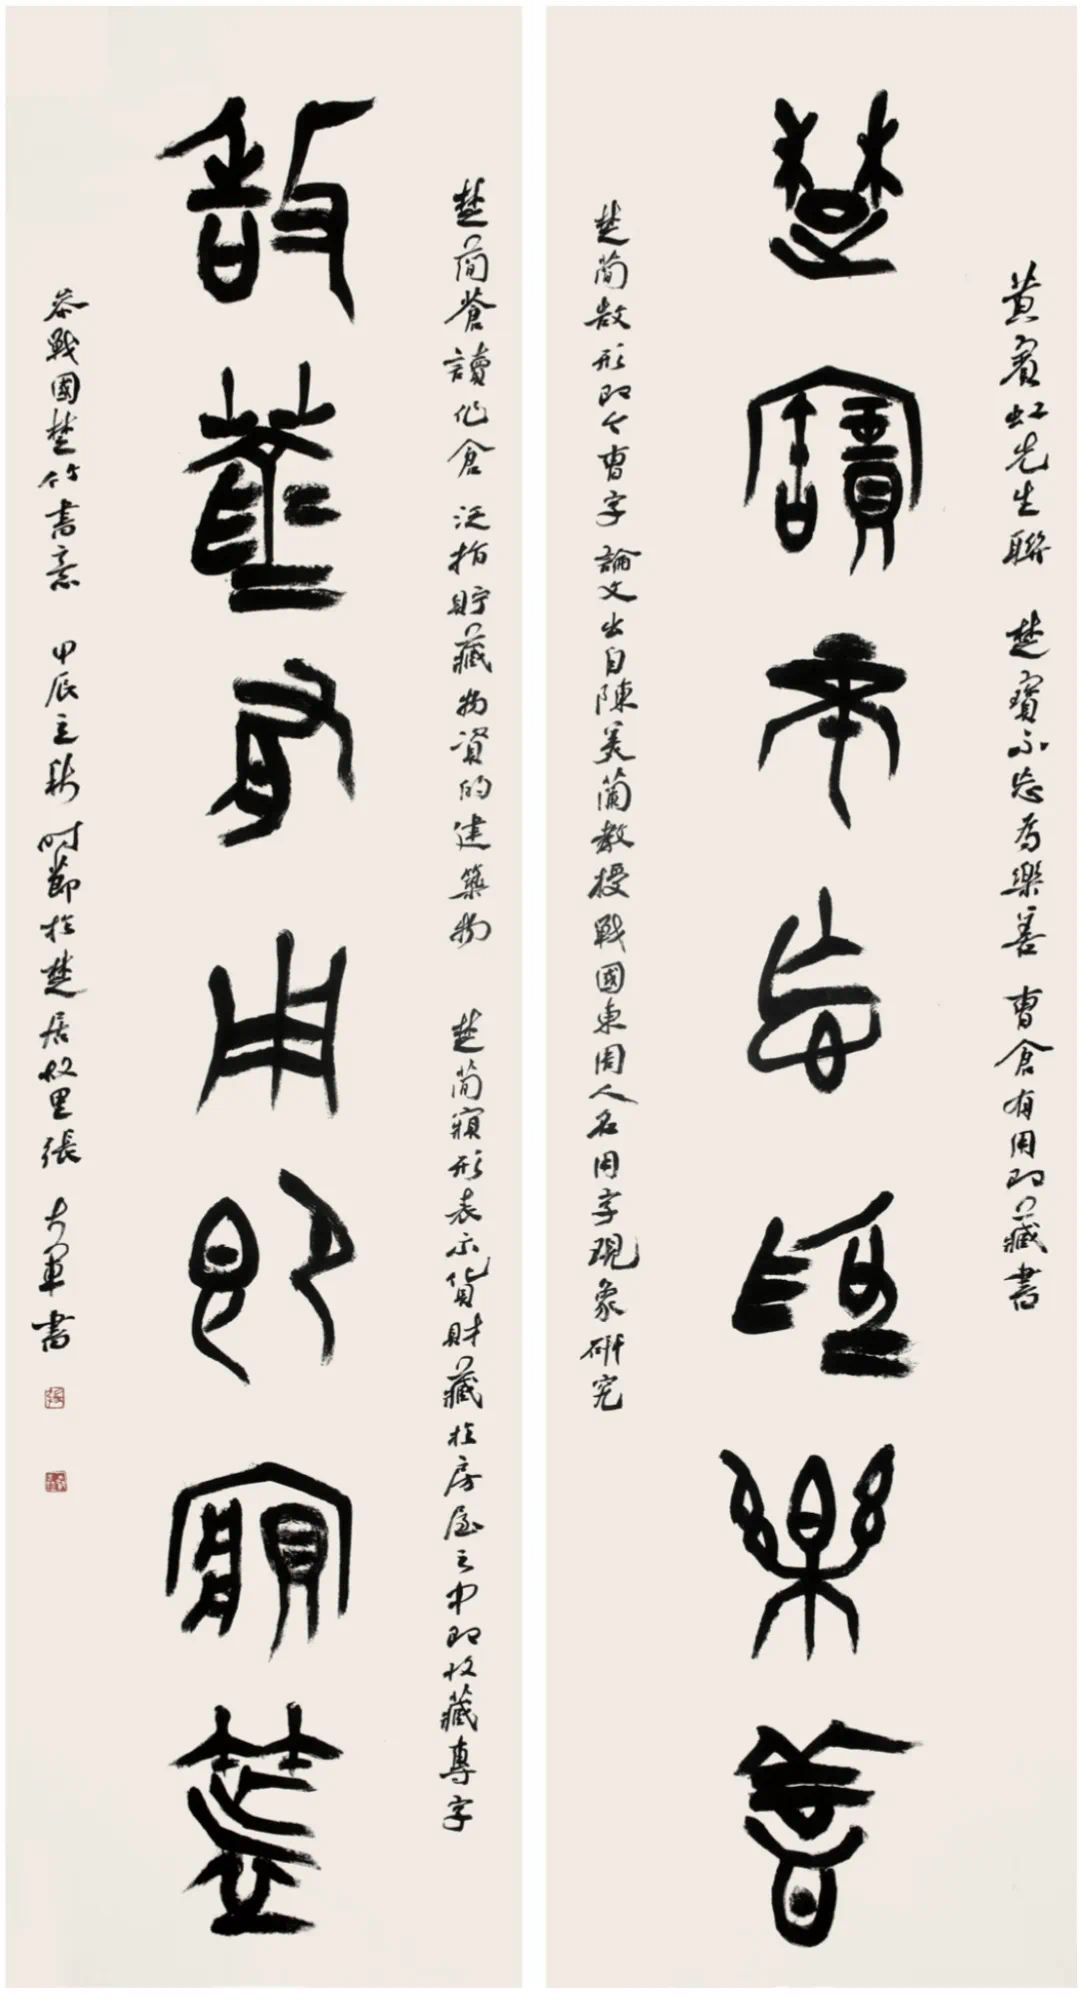 黄賓虹先生聯 楚寶不忘為樂善 曹倉有用即藏書
楚寶不忘為樂善
楚簡𢾕形即今曹字 論文出自陳美蘭教授戰國東周人名用字現象研究
楚簡蒼讀作倉 泛指貯藏物資的建築物 楚簡𡪹形表示貨財藏於房屋之中即收藏專字
𢾕蒼有用即𡪹書
參戰國楚竹書意 甲辰立秋時節於楚居故里張大軍書